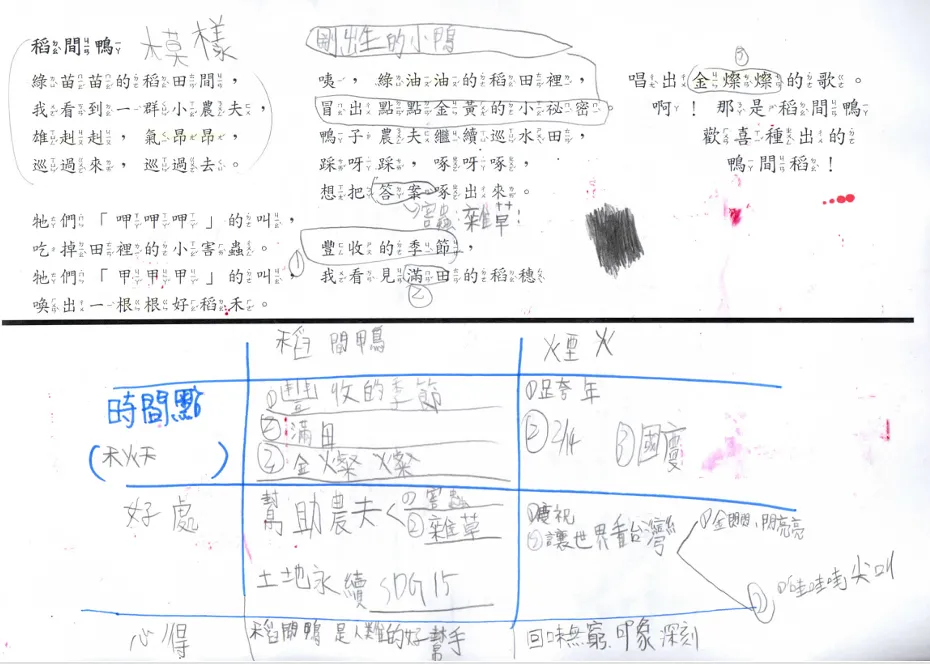 稻間鴨 模樣
綠苗苗的稻田間，
我看到一群小農夫，
雄赳赳，氣昂昂，
巡過來，巡過去。
牠們「呷呷呷」的叫，
吃掉田裡的小害蟲。
牠們「甲甲甲」的叫，
喚出一根根好稻禾。
剛出生的小鴨
咦，綠油油的稻田裡，
冒出點點金黃的小祕密。
鴨子農夫繼續巡水田，
踩呀踩，啄呀啄，
想把答案啄出來。
害蟲、雜草！
① 豐收的季節，
我看見滿田的稻穗
②
③
唱出金燦燦的歌。
啊！那是稻間鴨
歡喜種出的
鴨間稻！
稻間鴨 煙火
時間點
①豐收的季節
②滿田
金燦燦
①跨年
②2/14 ③國慶
好處
幫助農夫<①害蟲
②雜草
土地永續 SDG 15
①慶祝
②讓世界看台灣
①金閃閃、閃亮亮
② 哇哇哇尖叫
心得
稻間鴨是人類的好幫手
回味無窮、印象深刻